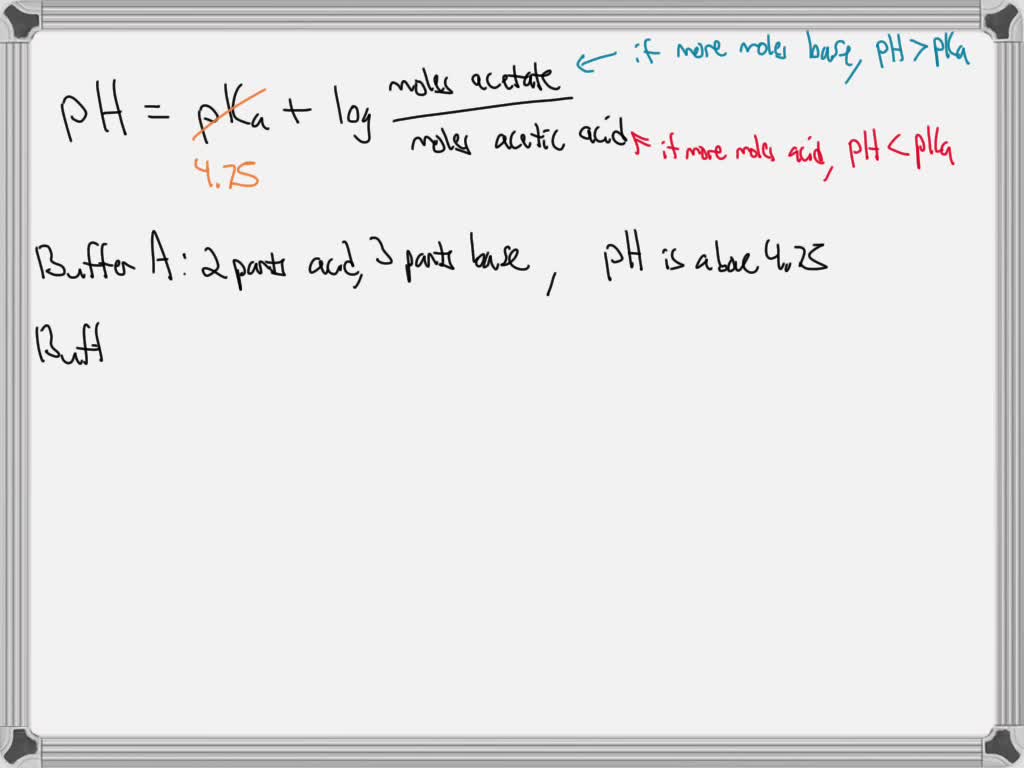 pH = pKa + log moles acetate / moles acetic acid
← if more moles base, pH > pKa
↖ if more moles acid, pH < pKa
4.75
Buffer A: 2 parts acid, 3 parts base, pH is above 4.75
Buff